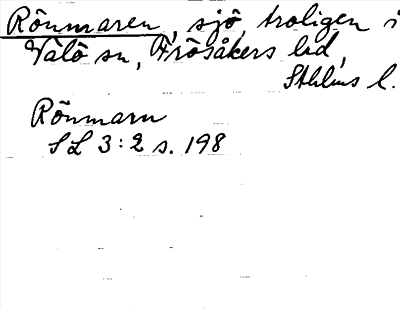 Rönmaren, sjö, troligen i
Valö sn, Frösåkers hd,
Sthlms l.
Rönmarn
SL 3:2 s. 198